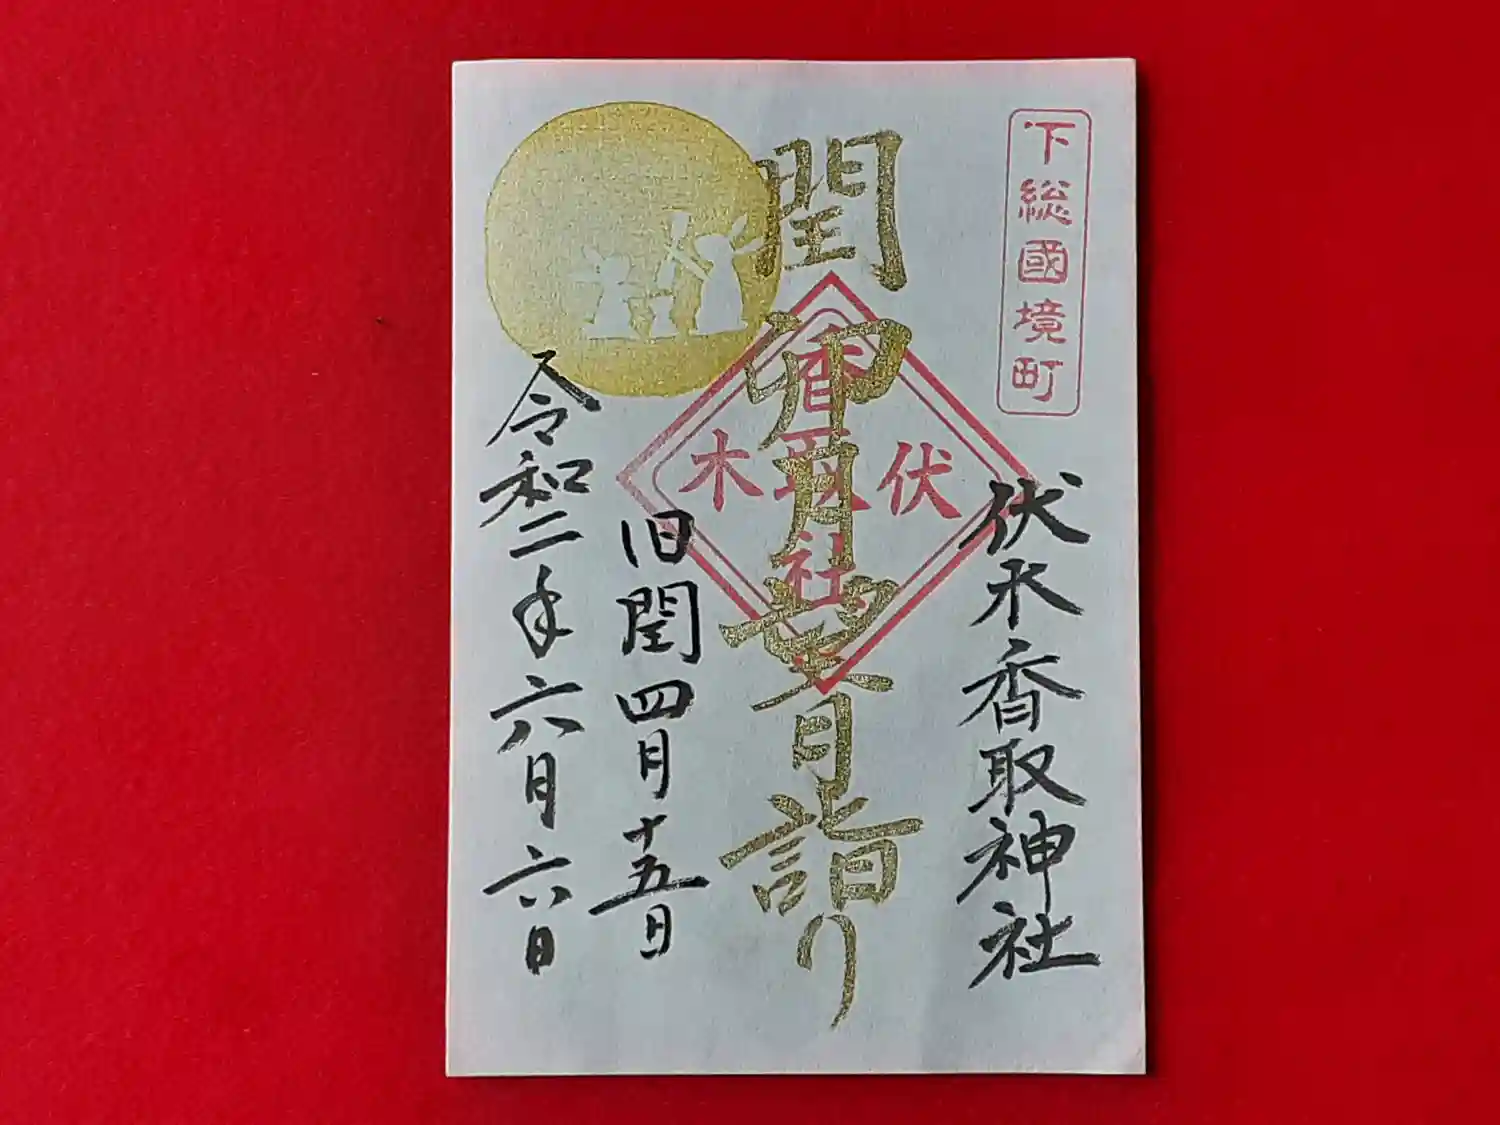 下総國境町
伏木香取神社
閏卯月望月詣り
伏木
香取
社
旧閏四月十五日
令和二年六月六日